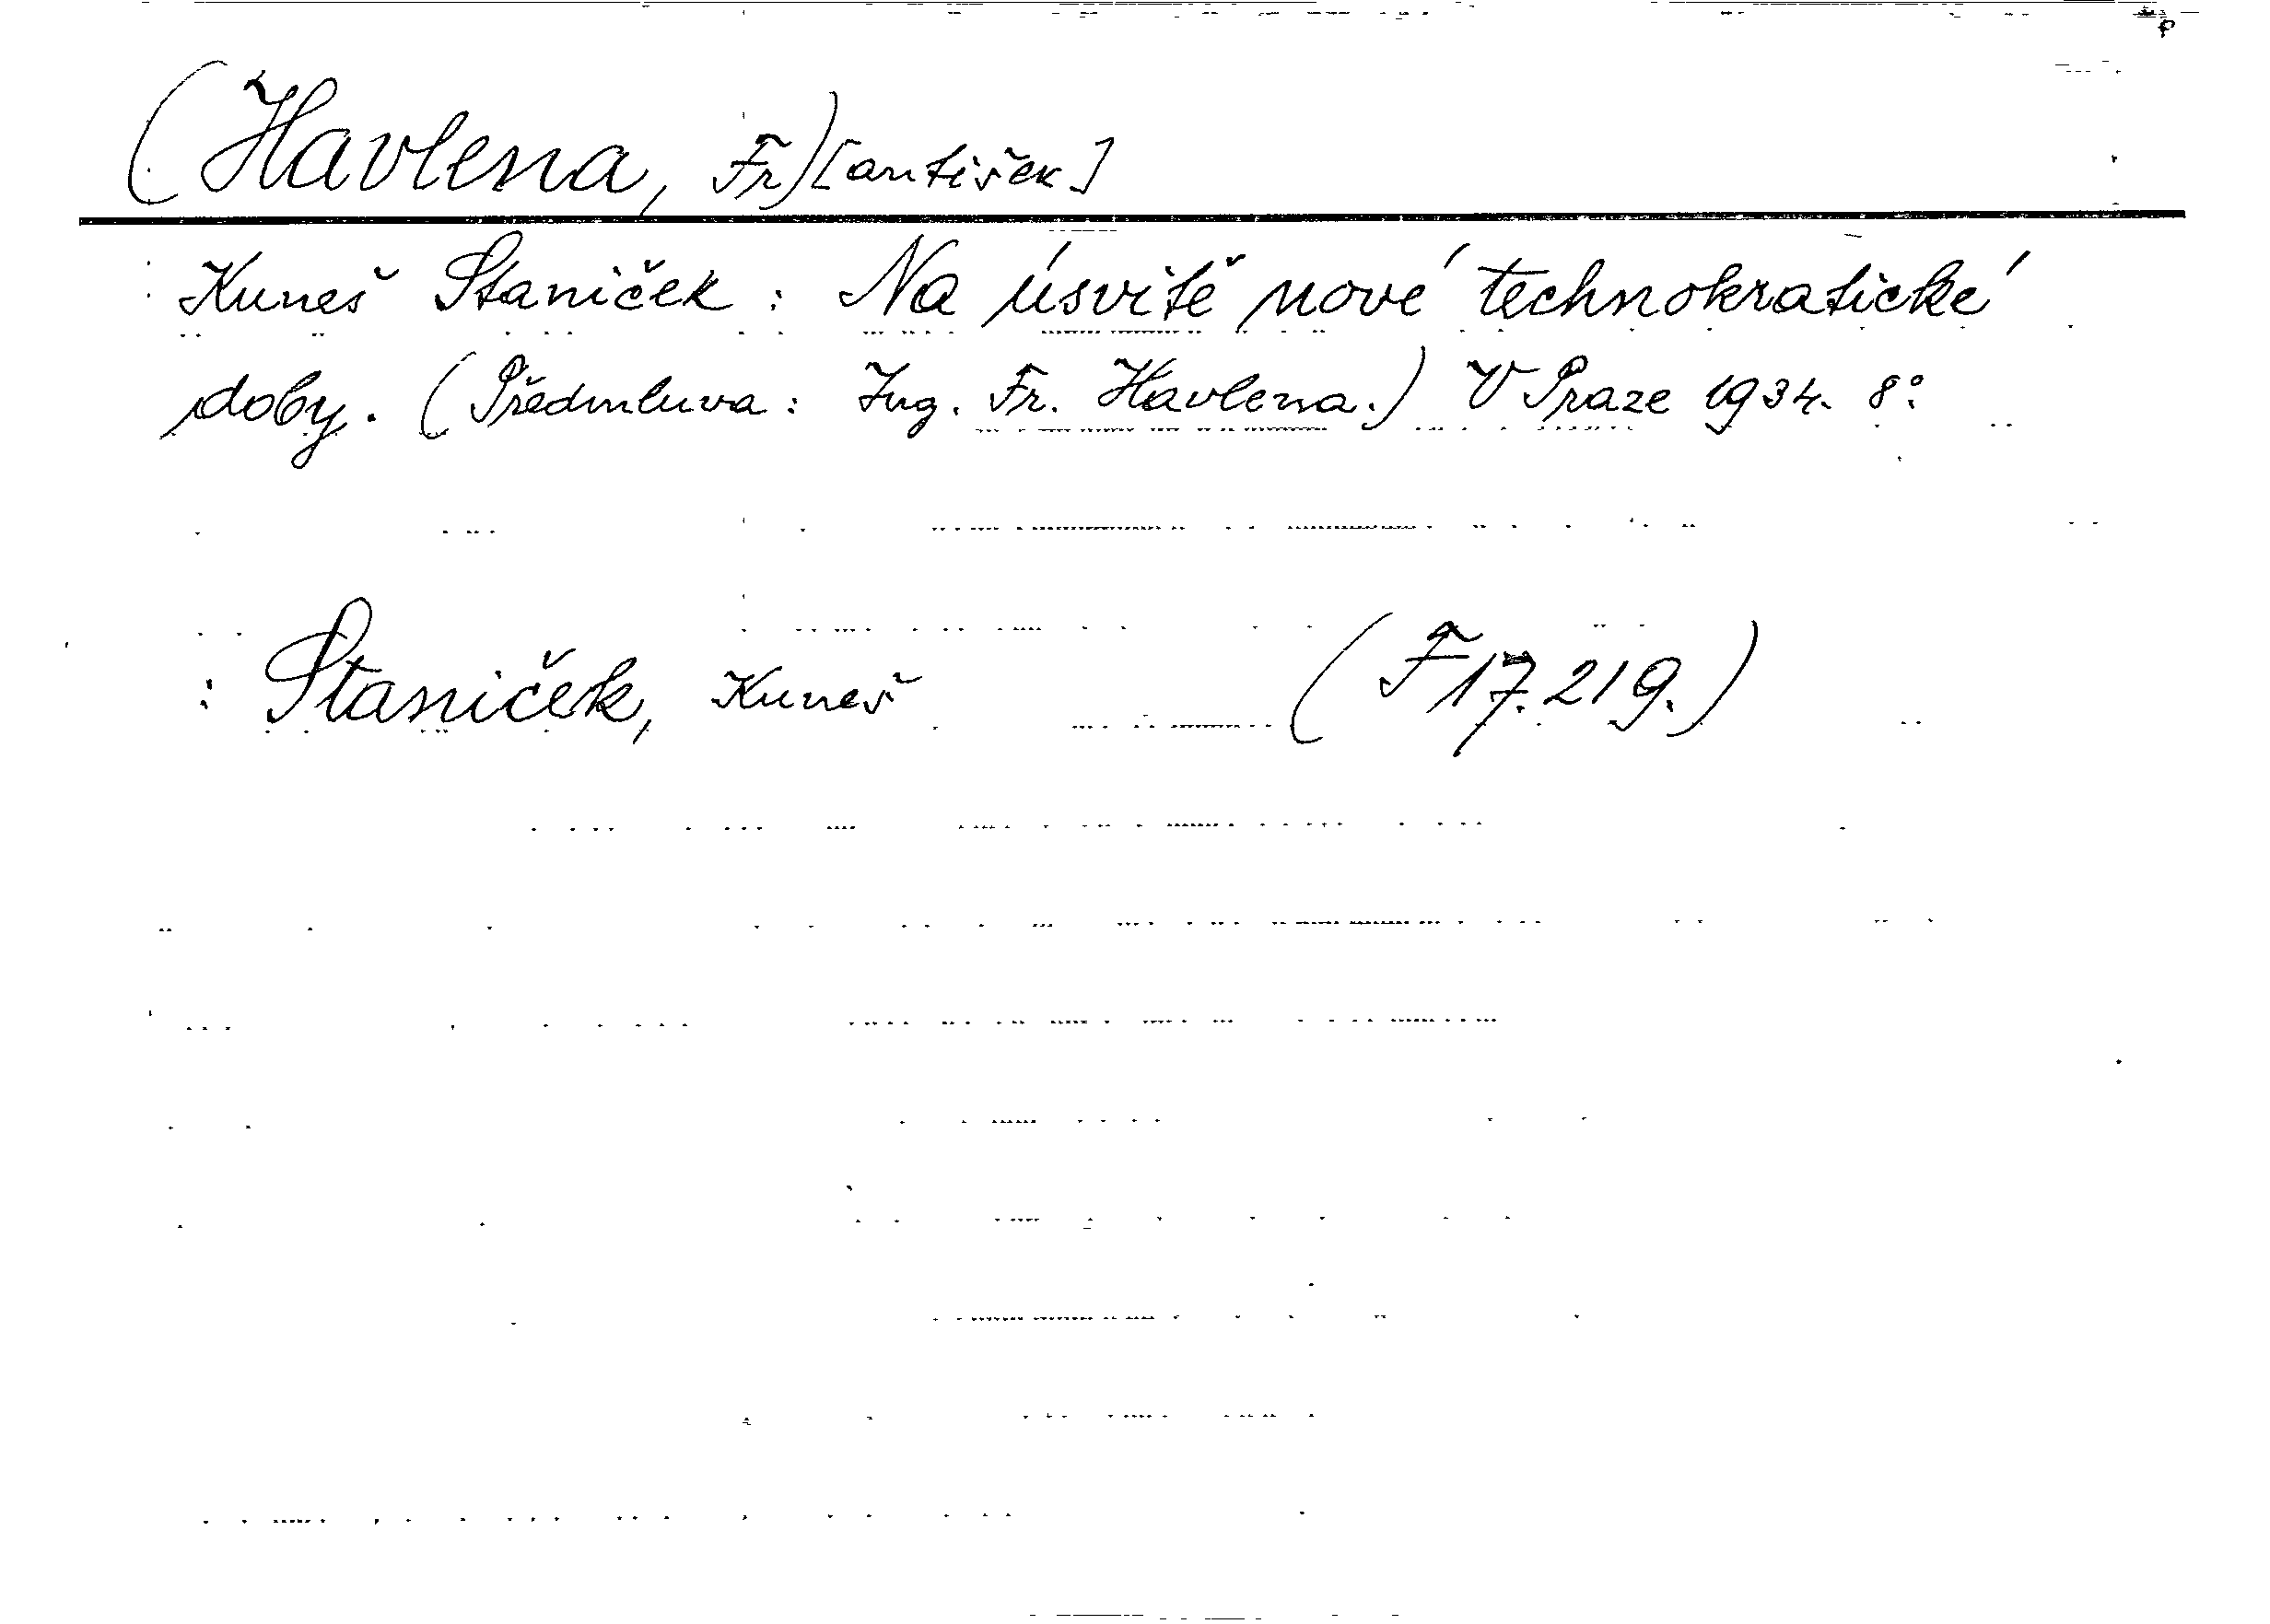 (Havlena, Fr)[antišek]
Kuneš Staniček : Na úsvitě nové technokratické
doby. (Předmluva: Ing. Fr. Havlena.) V Praze 1934. 8°.
: Staniček, Kuneš (F 17.219.)